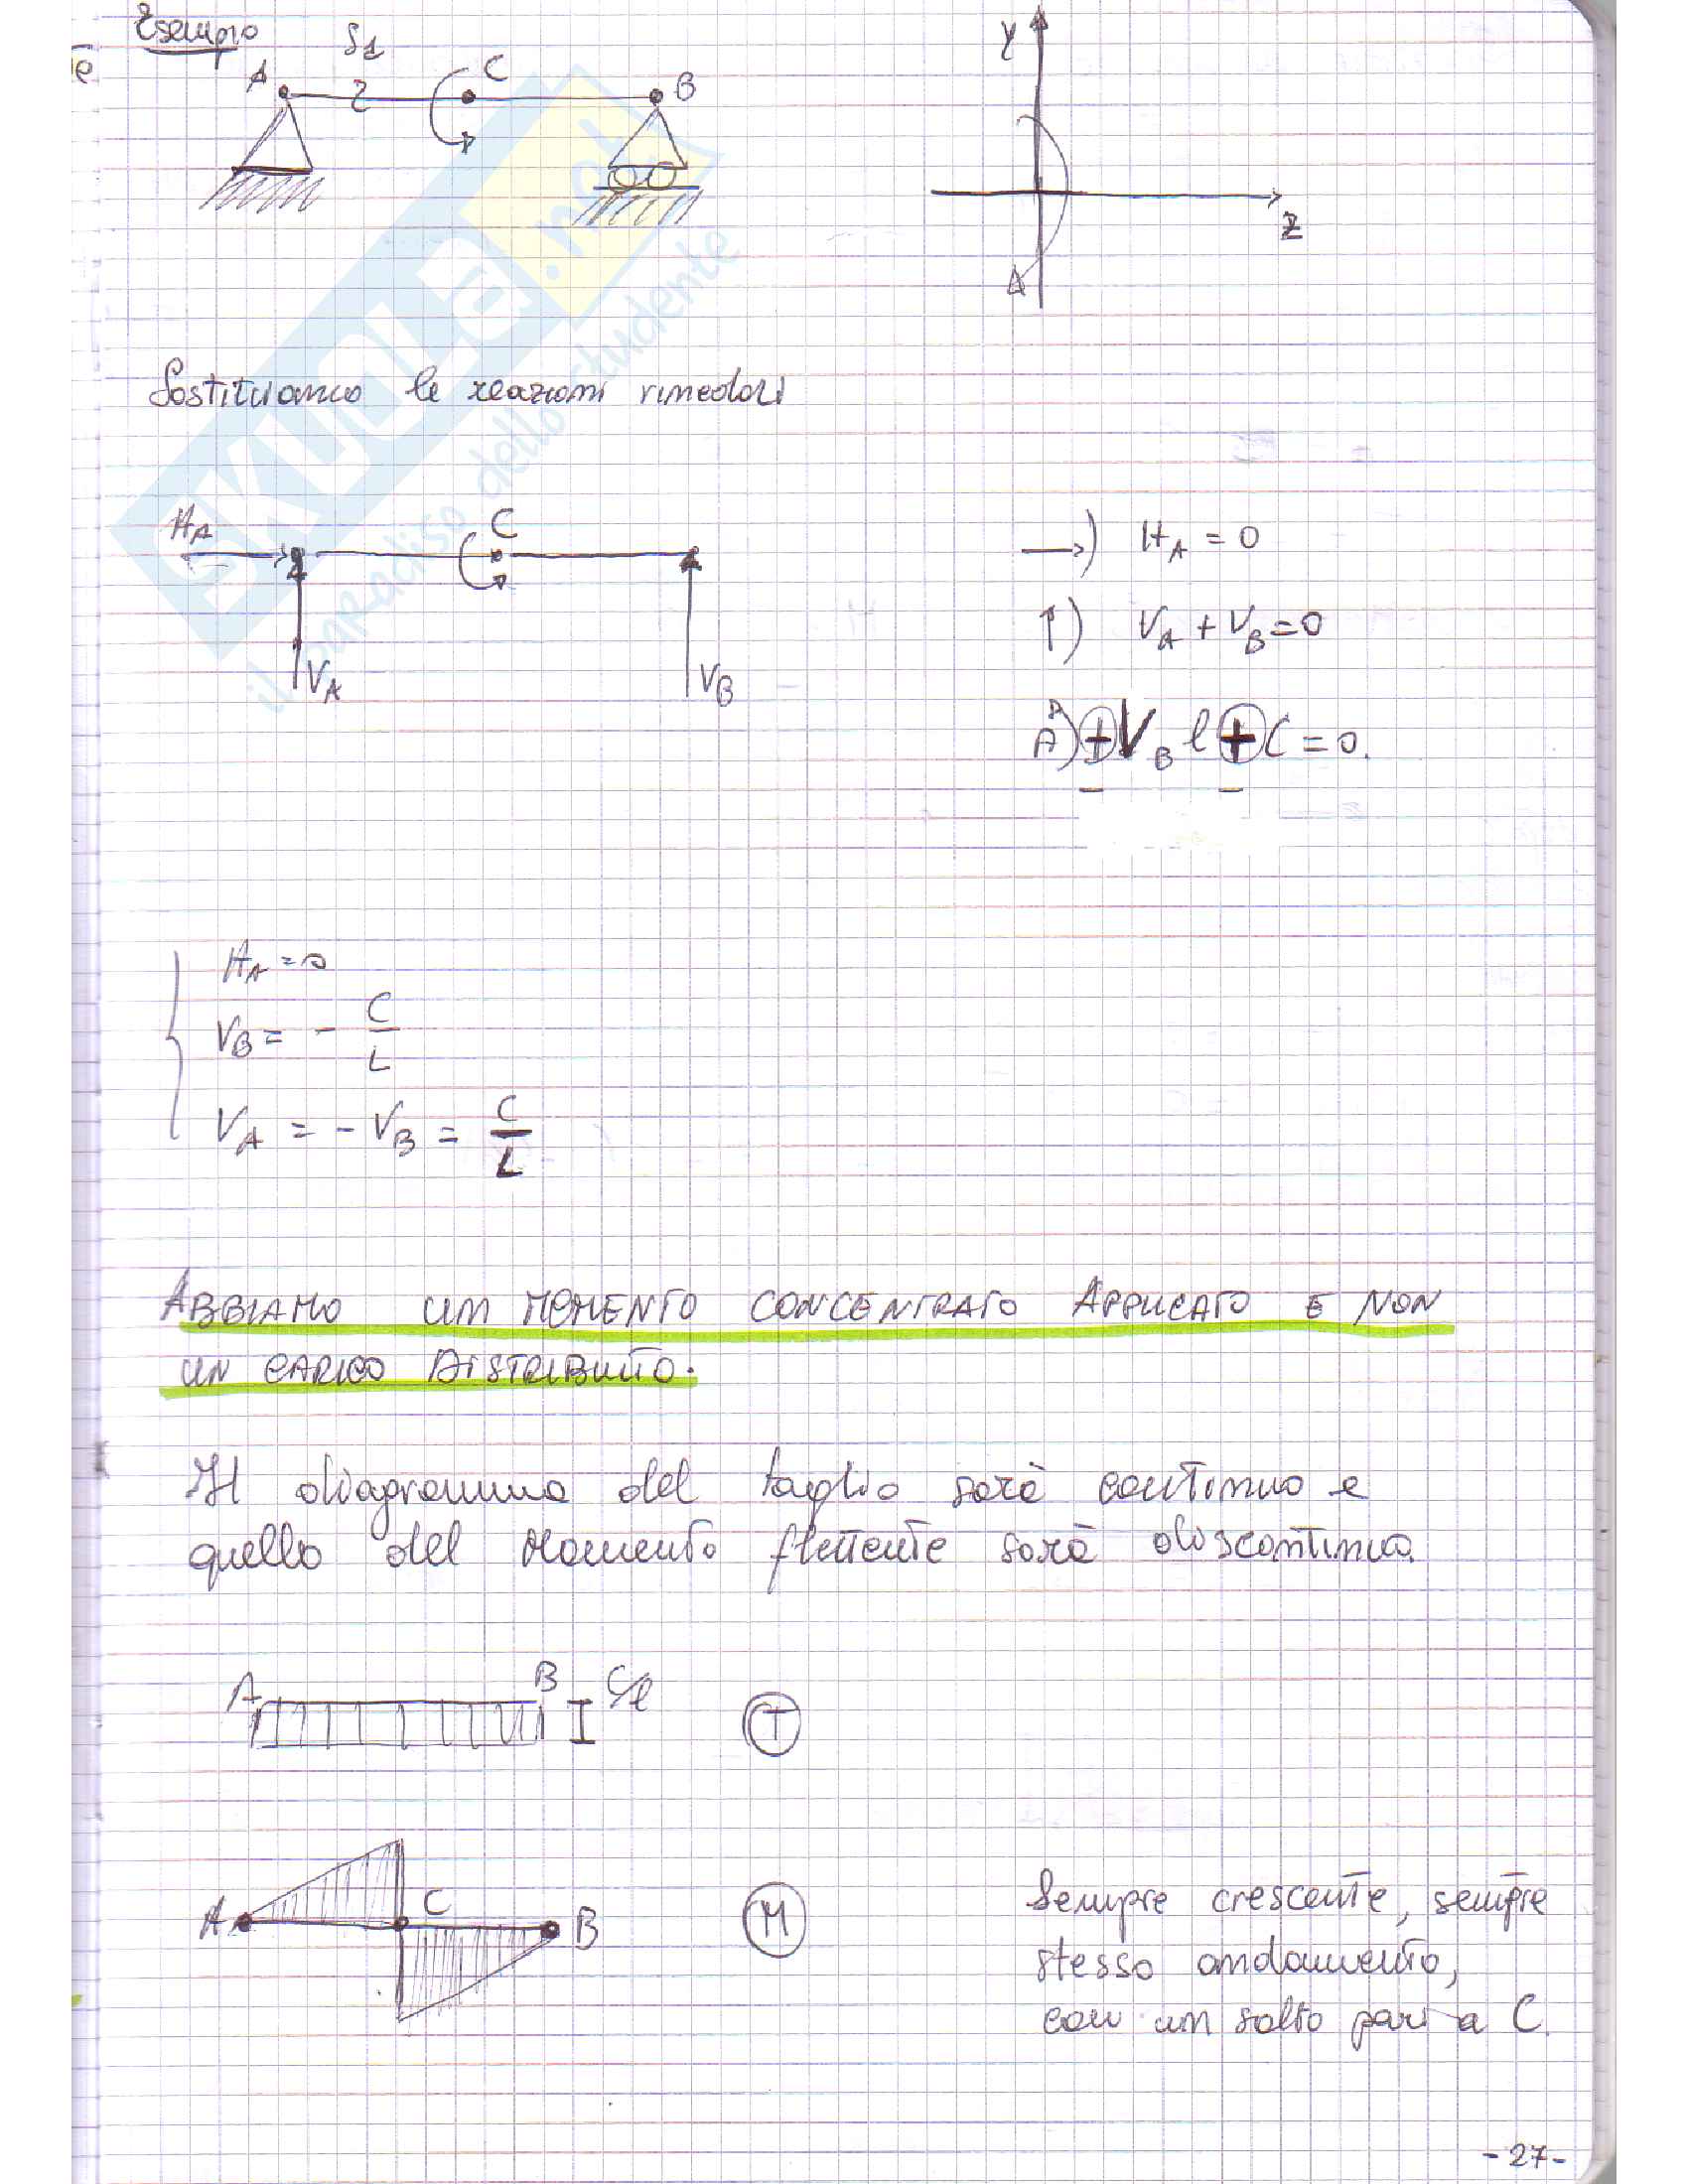 Esempio
è
S1
A
C
B
Y
Z
Sostituiamo le reazioni vincolari
HA
C
VA
VB
→) HA = 0
↑) VA + VB = 0
A) + VB l + C = 0.
HA = 0
VB = - C/L
VA = - VB = C/L
ABBIAMO UN MOMENTO CONCENTRATO APPLICATO E NON
UN CARICO DISTRIBUITO.
Il diagramma del taglio sarà continuo e
quello del Momento flettente sarà discontinuo.
A
B
C/l
T
A
C
B
M
Sempre crescente, sempre
stesso andamento,
con un salto pari a C.
-27-
SKUOLA.net
il paradiso dello studente